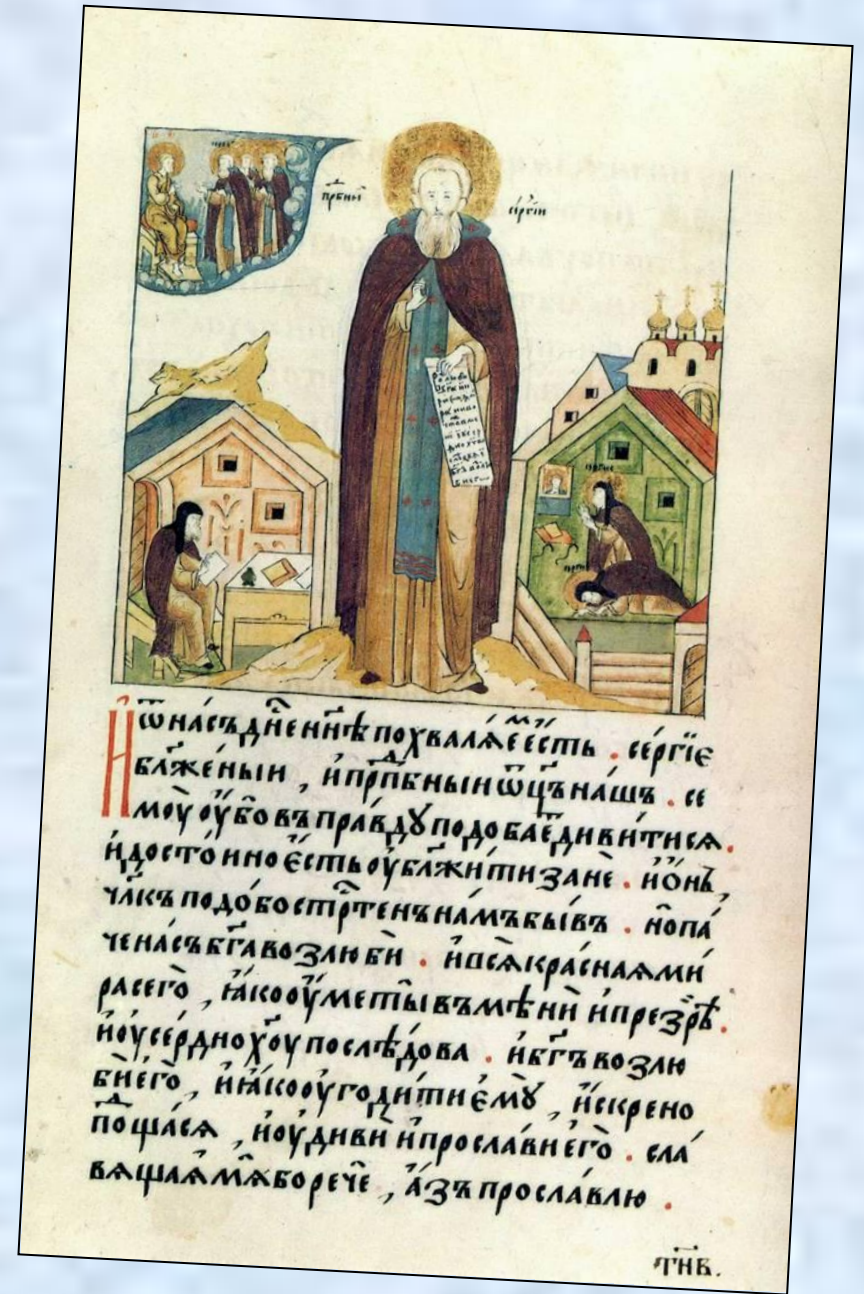 прⷣбныи
сергіи
сергіе
И ѿ на́съ дн҃е нн҃ѣ похваля́емъ е҆́сть . се́ргїе
бл҃же́ныи , и҆ прⷣпⷣбныи ѿц҃ъ на́шъ . се
моу̀ оу҆́бо въ пра́вдꙋ подобае́ диви́тися .
и҆ досто́ино є҆́сть оу҆бл҃жи́ти занѐ . и҆ о҆́нъ ,
чл҃къ подо́бостр҃тенъ на́мъ бы́въ . но̀ па́
че на́съ бг҃а возлюбѝ . и҆ вся̀ кра́сная ми́
ра сего̀ , ꙗ҆́ко оу҆ме́ты въмѣнѝ и҆ презрѣ̀ .
и҆ оу҆се́рдно хо҃у послѣ́дова . и҆ бг҃ъ возлю
бѝ є҆го̀ , и҆ ꙗ҆́ко оу҆годи́ти є҆мꙋ̀ , и҆́скрено
поⷣща́ся , и҆ оу҆дивѝ и҆ просла́ви є҆го̀ . сла́
вящая мя̀ бо речѐ , а҆́зъ просла́влю .
тн҃в.